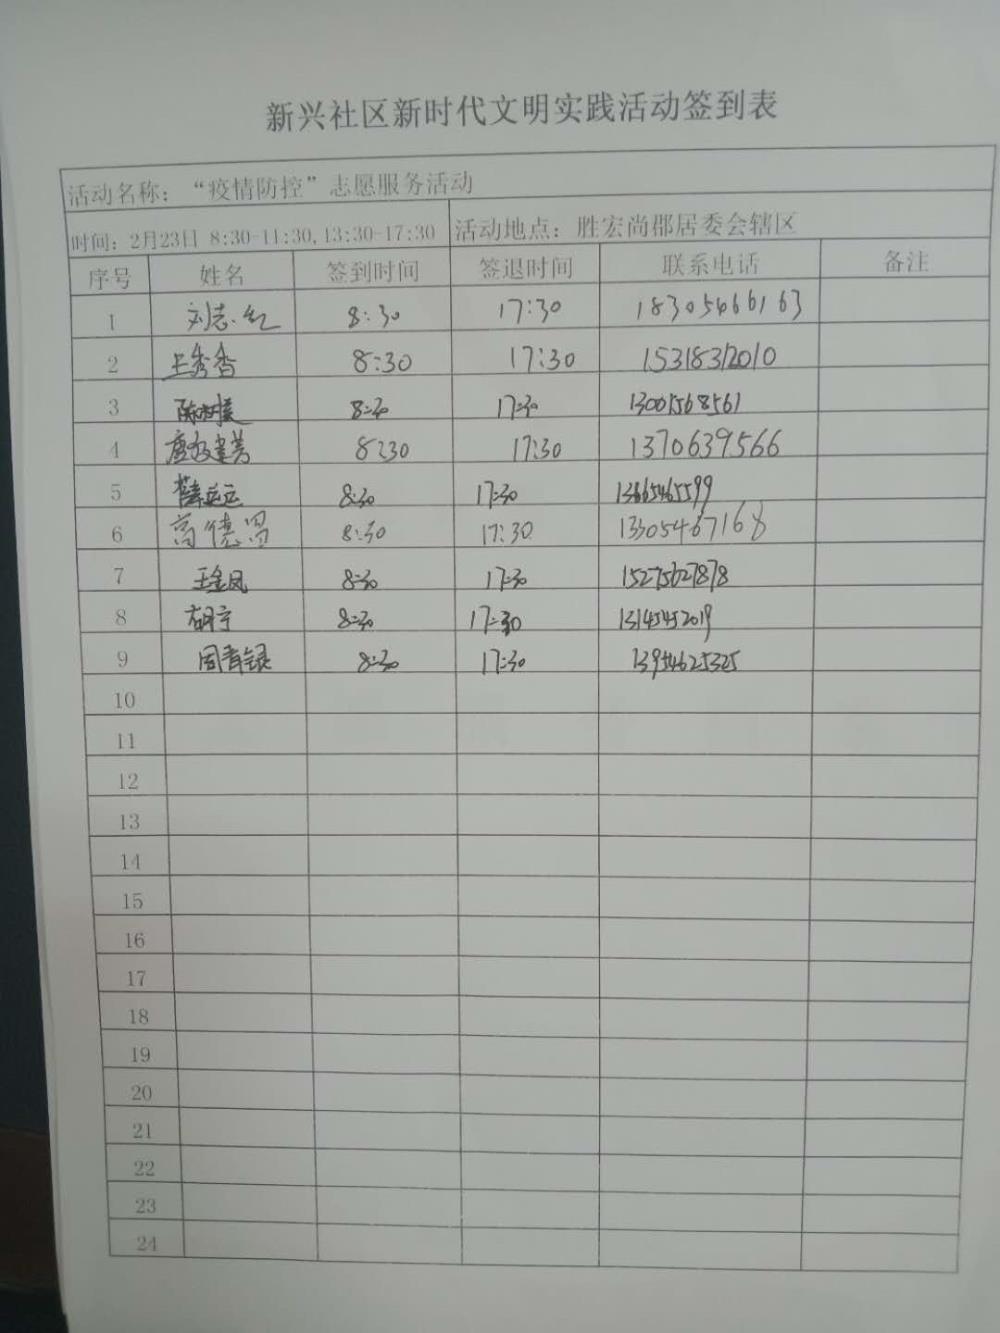 新兴社区新时代文明实践活动签到表
活动名称：“疫情防控”志愿服务活动
时间：2月23日 8:30-11:30,13:30-17:30 活动地点：胜宏尚郡居委会辖区
序号 姓名 签到时间 签退时间 联系电话 备注
1 刘志红 8:30 17:30 18305466163
2 王秀香 8:30 17:30 15318312010
3 8:30 17:30 13001568561
4 8:30 17:30 1370639566
5 8:30 17:30 13665465599
6 高德昌 8:30 17:30 13305467168
7 王金凤 8:30 17:30 15275627878
8 胡宁 8:30 17:30 13145452019
9 周青银 8:30 17:30 13954625325
10
11
12
13
14
15
16
17
18
19
20
21
22
23
24